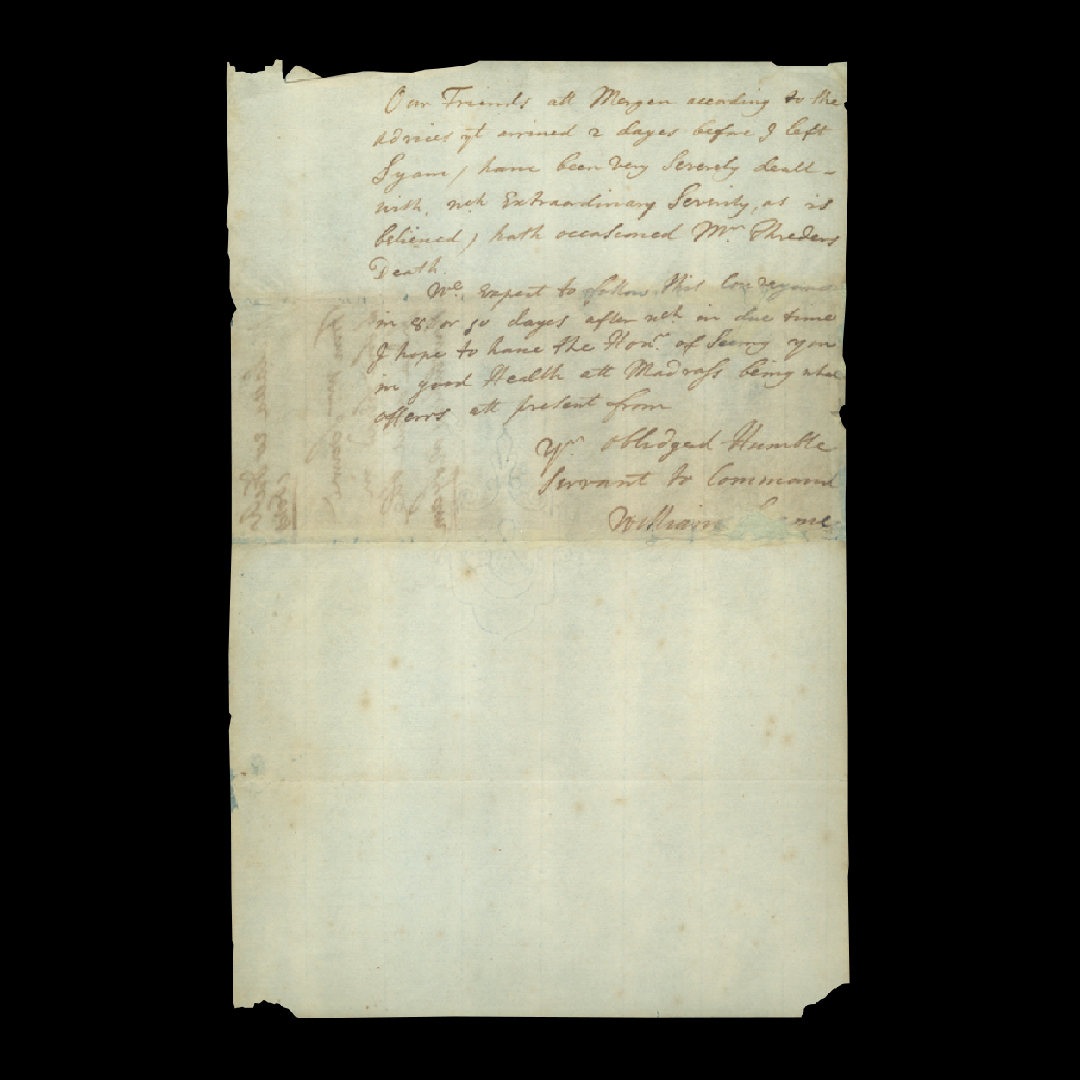 Our Friends att Mergen according to the
advices yt errived 2 dayes before I left
Syam, have been very Severely dealt-
with, wch Extraordinary Severity, as is
believed, hath occasioned Mr. Threders
Death.
We expect to follow this Conveyance
in 8 or 10 dayes after wch in due time
I hope to have the Honr. of Seeing you
in good Health att Madrass being what
offerrs att present from
Yr. oblidged Humble
Servant to Command
William